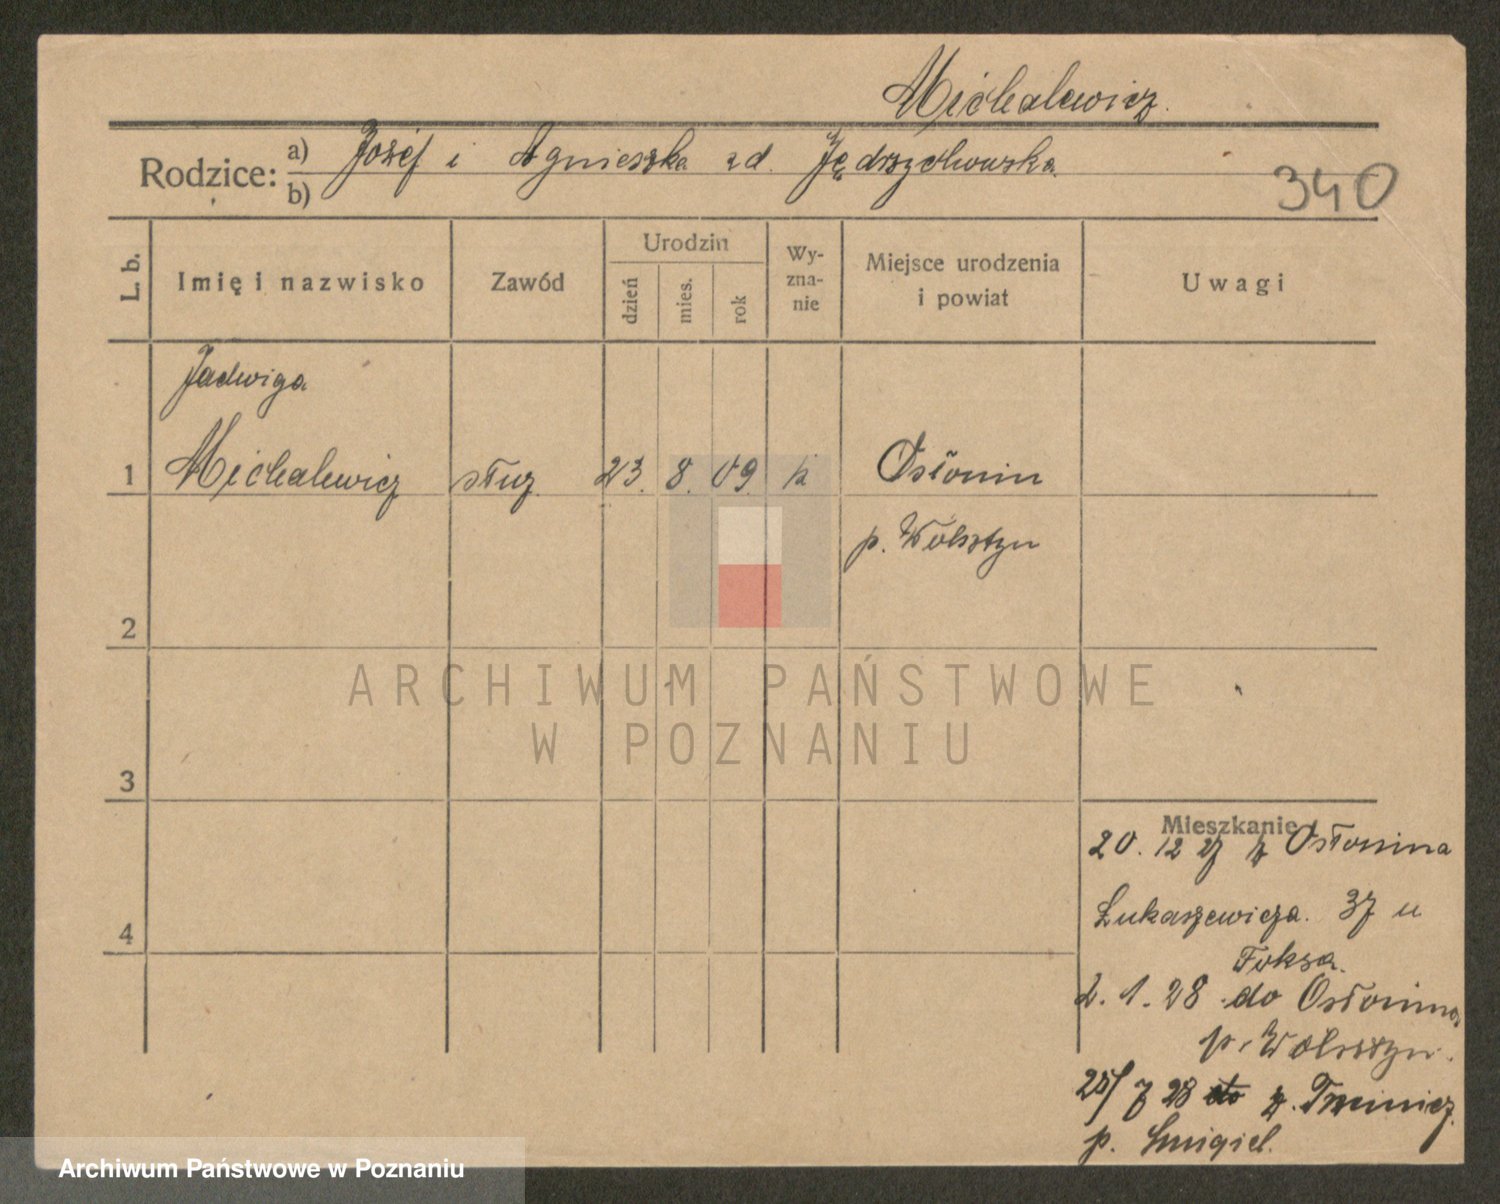 Michalewicz.
Rodzice: a) Józef i Agnieszka zd. Jędrzychowska
b)
340
L. b.
Imię i nazwisko
Zawód
Urodzin
dzień
mies.
rok
Wy-
zna-
nie
Miejsce urodzenia
i powiat
Uwagi
Jadwiga
1 Michalewicz służ. 23. 8. 09 k Osłonin
p. Wolsztyn
2
3
4
ARCHIWUM PAŃSTWOWE
W POZNANIU
Mieszkanie
20. 12 27 z Osłonina
Łukaszewicza. 37 u
Foksa.
2. 1. 28 do Osłonina
p. Wolsztyn.
25/7 28 do z.
p. Śmigiel.
Archiwum Państwowe w Poznaniu